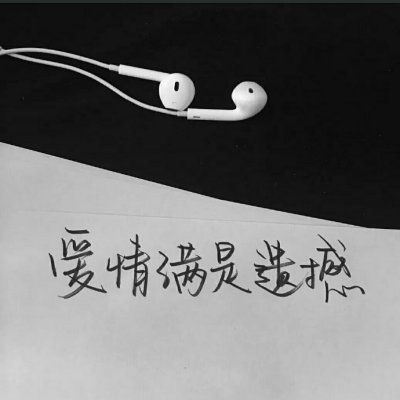 爱情满是遗撼